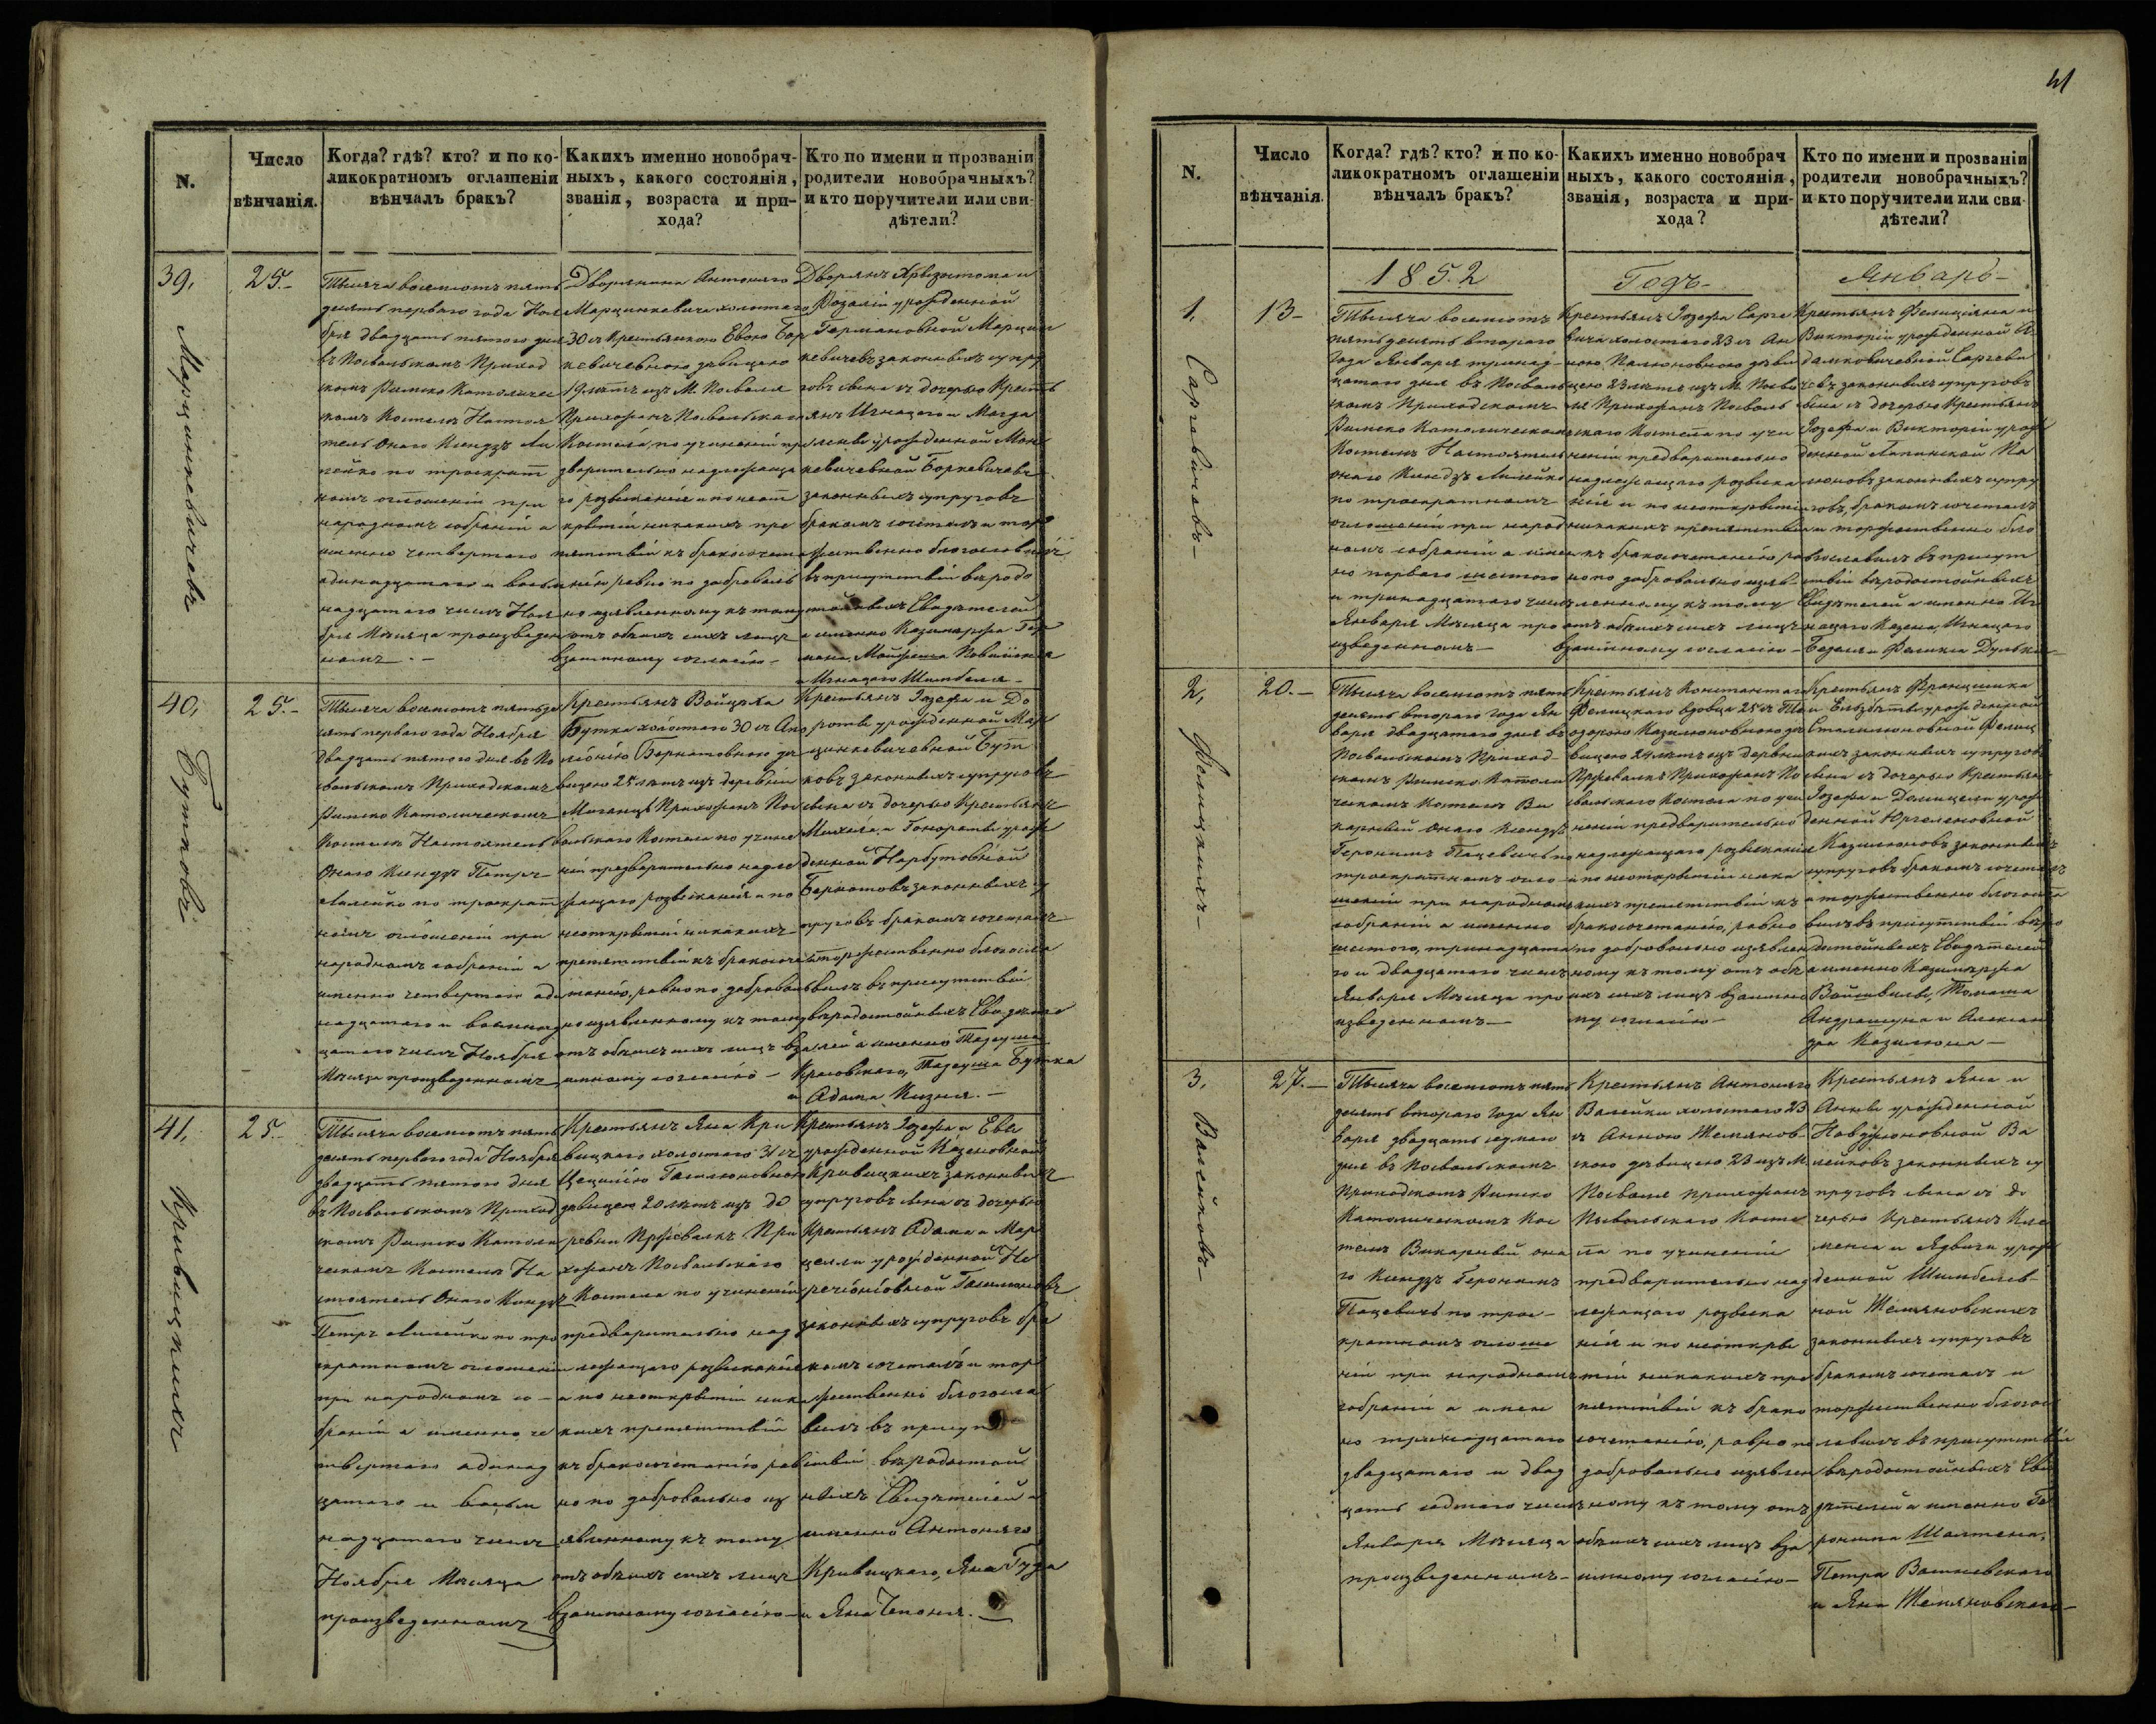 N.
Число
вѣнчанія.
Когда? гдѣ? кто? и по ко-
ликократномъ оглашеніи
вѣнчалъ бракъ?
Какихъ именно новобрач-
ныхъ, какого состоянія,
званія, возраста и при-
хода?
Кто по имени и прозваніи
родители новобрачныхъ?
и кто поручители или сви-
дѣтели?
39,
Марцинкевичевъ
25.-
Тысяча восемьсотъ пять
десятъ перваго года Ноя
бря двадцать пятого дня
въ Посвольскомъ Приход
скомъ Римско Католичес
комъ Костелѣ Настоя
тель Онаго Ксендзъ Ли
лейко по троекрат
номъ оглошеніи при
народномъ собраніи а
именно четвертаго
адинадцатаго и восьм
надцатаго числъ Ноя
бря Мѣсяца произведен
номъ. -
Дворянина Антоняго
Марцинкевича холостаго
30 съ Крестьянкою Евою Бор
кевичевною дѣвицею
19 лѣтъ изъ М. Посволя
Прихожанъ Посвольскаго
Костела, по учиненіи пр
дварительно надлежаща
го розысканія и по неот
крытіи никакихъ пре
пятствій къ бракосочета
нію равно по добровольь
но изявленному къ тому
отъ обоихъ сихъ лицъ
взаимному согласію -
Дворянъ Хризостома и
Розаліи урожденной
Германовной Марцин
кевичевъ законныхъ супру
говъ сына съ дочерью Кресть
янъ Игнацого и Магда
лены урожденной Мон
кевичевной Боркевичевъ
законныхъ супруговъ
бракомъ сочеталъ и тор
жественно благословилъ
въ присутствіи вѣродо
стойныхъ Свидѣтелей
а именно Казимержа Гер
мана, Мойжеша Повилонса
и Игнацого Шимбеля -
40,
Бутковъ
25.-
Тысяча восемьсотъ пятьде
сятъ перваго года Ноября
двадцать пятого дня въ По
свольскомъ Приходскомъ
Римско Католическомъ
Костелѣ Настоятель
Онаго Ксендзъ Петръ
Лилейко по троекрат
номъ оглошеніи при
народномъ собраніи а
именно четвертаго ади
надцатаго и восьмнад
цатаго числъ Ноября
Мѣсяца произведенномъ
Крестьянъ Войцѣха
Бутка холостаго 30 съ Апо
лонією Бернотовною дѣ
вицею 25 лѣтъ изъ деревни
Миганцъ Прихожанъ Пос
вольскаго Костела по учине
ніи предварительно надле
жащаго розысканія и по
неоткрытіи никакихъ
препятствій къ бракосоче
танію, равно по доброволь
но изявленному къ тому
отъ обоихъ сихъ лицъ вза
имному согласію -
Крестьянъ Іозефа и До
роты урожденной Мар
цинкевичевной Бут
ковъ законныхъ супруговъ
сына съ дочерью Крестьянъ
Михала и Гонораты урож
денной Нарбутовной
Бернотовъ законныхъ су
пруговъ бракомъ сочеталъ
и торжественно благосло
вилъ въ присутствіи
вѣродостойныхъ Свидѣте
лей а именно Тадеуша
Красовскаго, Тадеуша Бутка
и Адама Кизня. -
41,
Кривицкихъ
25.-
Тысяча восемьсотъ пять
десятъ перваго года Ноября
двадцать пятого дня
въ Посвольскомъ Приход
скомъ Римско Католи
ческомъ Костелѣ На
стоятель Онаго Ксендзъ
Петръ Лилейко по тро
екратномъ оглошеніи
при народномъ со-
браніи а именно че
твертаго адинад
цатаго и восьм
надцатаго числъ
Ноября Мѣсяца
произведенномъ
Крестьянъ Яна Кри
вицкого холостаго 31 съ
Цецилією Гасюновною
дѣвицею 20 лѣтъ изъ де
ревни Пржевалкъ При
хожанъ Посвольскаго
Костела по учиненіи
предварительно над
лежащаго розысканія
и по неоткрытіи ника
кихъ препятствій
къ бракосочетанію рав
но по добровольно из
явленному къ тому
отъ обоихъ сихъ лицъ
взаимному согласію -
Крестьянъ Іозефа и Евы
урожденной Казеновной
Кривицкихъ законныхъ
супруговъ сына съ дочерью
Крестьянъ Адама и Мар
целли урожденной
законныхъ супруговъ бра
комъ сочеталъ и тор
жественно благосло
вилъ въ присут
ствіи вѣродостой
ныхъ Свидѣтелей а
именно Антоняго
Кривицкаго, Яна Гуда
и Яна Чепоня. -
41
N.
Число
вѣнчанія.
Когда? гдѣ? кто? и по ко-
ликократномъ оглашеніи
вѣнчалъ бракъ?
Какихъ именно новобрач
ныхъ, какого состоянія,
званія, возраста и при-
хода?
Кто по имени и прозваніи
родители новобрачныхъ?
и кто поручители или сви-
дѣтели?
1852 Годъ- Январь-
1.
Саргевичевъ-
13-
Тысяча восемьсотъ
пятьдесятъ второго
года Января тринад
цатаго дня въ Посволь
скомъ Приходскомъ
Римско Католическомъ
Костелѣ Настоятель
онаго Ксендзъ Лилейко
по троекратномъ
оглошеніи при народ
номъ собраніи а имен
но перваго шестого
и тринадцатаго числъ
Января Мѣсяца про
изведенномъ -
Крестьянъ Іозефа Сарге
вича холостаго 23 съ Ан
ною Палионовною дѣви
цею 23 лѣтъ изъ М. Посво
ля Прихожанъ Посволь
скаго Костела по учи
неніи предварительно
надлежащаго розыска
нія и по неоткрытіи
никакихъ препятствій
къ бракосочетанію рав
но по добровольно изяв-
ленному къ тому
отъ обоихъ сихъ лицъ
взаимному согласію -
Крестьянъ Фелиціяна и
Викторіи урожденной А
дамковичевной Саргеви
чевъ законныхъ супруговъ
сына съ дочерью Крестьянъ
Іозефа и Викторіи урож
денной Лапинской Па
люновъ законныхъ супру
говъ, бракомъ сочеталъ
и торжественно бла
гословилъ въ присут
ствіи вѣродостойныхъ
Свидѣтелей а именно Иг
нацаго Казена, Игнацаго
Бедаля и Феликса Дулька -
2,
Фелицкихъ-
20.-
Тысяча восемьсотъ пять
десятъ второго года Ян
варя двадцатаго дня въ
Посвольскомъ Приход-
скомъ Римско Католи
ческомъ Костелѣ Ви
карный онаго Ксендзъ
Геронимъ Пацевичъ по
троекратномъ огло-
шеніи при народномъ
собраніи а именно
шестого, тринадцата
го и двадцатаго числъ
Января Мѣсяца про
изведенномъ -
Крестьянъ Константаго
Фелицкаго вдовца 25 съ Те
одорою Казилюновною дѣ
вицею 24 лѣтъ изъ деревни
Пржевалкъ Прихожанъ По
свольскаго Костела по учи
неніи предварительно
надлежащаго розысканія
и по неоткрытіи ника
кихъ препятствій къ
бракосочетанію, равно
по добровольно изявлен
ному къ тому отъ обо
ихъ сихъ лицъ взаимно
му согласію -
Крестьянъ Францишка
и Елъзбѣты урожденной
Стаклюновной Фелиц
кихъ законныхъ супруговъ
сына съ дочерью Крестьянъ
Іозефа и Домицели урож
денной Юргеленовной
Казилюновъ законныхъ
супруговъ бракомъ сочеталъ
и торжественно благосло
вилъ въ присутствіи вѣро
достойныхъ Свидѣтелей
а именно Казимержа
Войтвилы, Томаша
Андрашуна и Алексан
дра Казилюна -
3,
Валейковъ-
27.-
Тысяча восемьсотъ пять
десятъ второго года Ян
варя двадцать седмаго
дня въ Посвольскомъ
Приходскомъ Римско
Католическомъ Кос
телѣ Викарный она
го Ксендзъ Геронимъ
Пацевичъ по трое-
кратномъ оглоше
ніи при народномъ
собраніи а имен
но тринадцатаго
двадцатаго и двад
цать седмаго числъ
Января Мѣсяца
произведенномъ -
Крестьянъ Антоняго
Валейки холостаго 23
съ Анною Жемянов-
скою дѣвицею 23 изъ М.
Посволя прихожанъ
Посвольскаго Косте
ла по учиненіи
предварительно над
лежащаго розыска
нія и по неоткры
тіи никакихъ пре
пятствій къ брако
сочетанію, равно по
добровольно изявлен
ному къ тому отъ
обоихъ сихъ лицъ вза
имному согласію -
Крестьянъ Яна и
Анны урожденной
Ва
лейковъ законныхъ су
пруговъ сына съ до
черью Крестьянъ Кле
менса и Ядвиги урож
денной Шимбелев-
ной Жемяновскихъ
законныхъ супруговъ
бракомъ сочеталъ и
торжественно благо
словилъ въ присутствіи
вѣродостойныхъ Сви
дѣтелей а именно Ге
ронима Шалтена,
Петра Вашневскаго
и Яна Жемяновскаго -